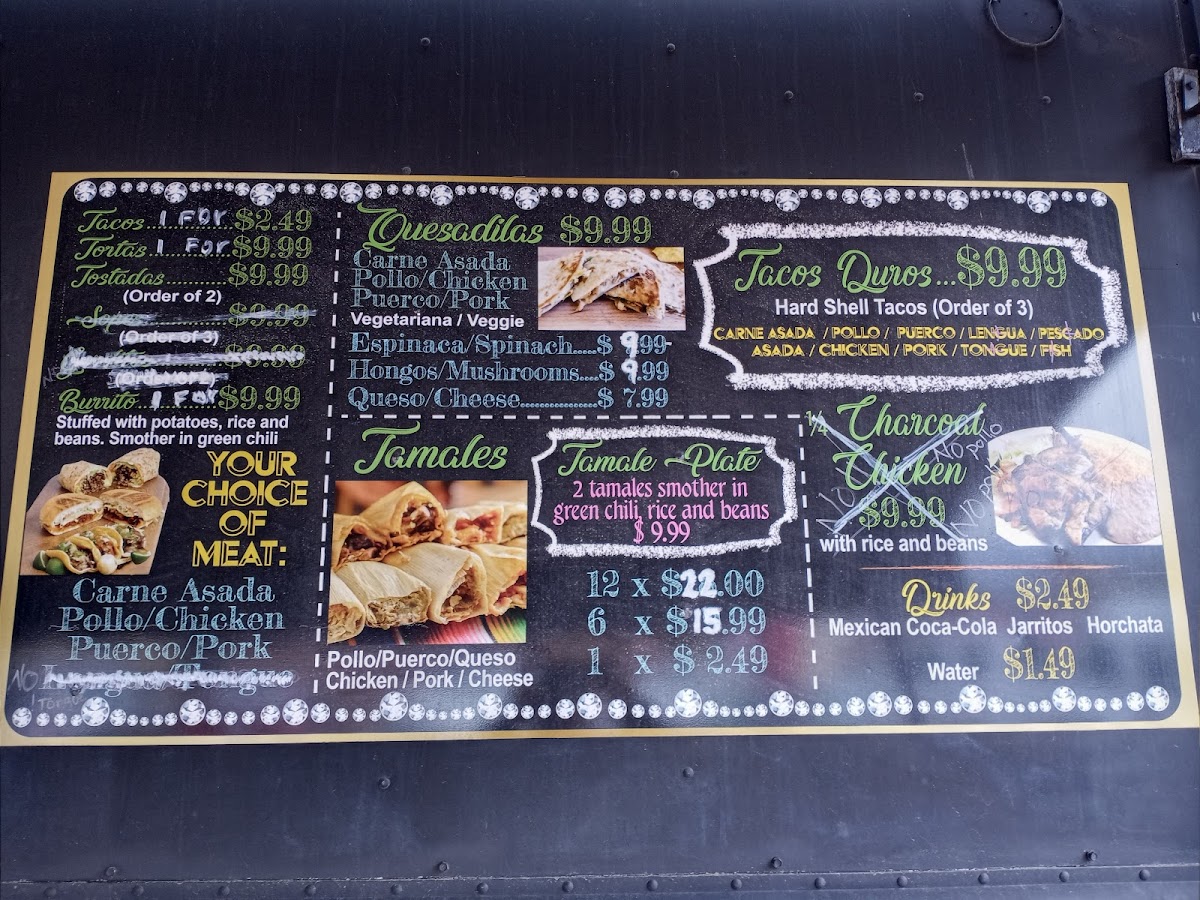 Tacos 1 FOR $2.49
Tortas 1 FOR $9.99
Tostadas ........... $9.99
(Order of 2)
Sopes ........... $9.99
(Order of 3)
$9.99
Burrito 1 FOR $9.99
Stuffed with potatoes, rice and
beans. Smother in green chili
YOUR
CHOICE
OF
MEAT:
Carne Asada
Pollo/Chicken
Puerco/Pork
NO Lengua/Tongue
Quesadilas $9.99
Carne Asada
Pollo/Chicken
Puerco/Pork
Vegetariana / Veggie
Espinaca/Spinach.....$ 9.99
Hongos/Mushrooms....$ 9.99
Queso/Cheese................$ 7.99
Tamales
Pollo/Puerco/Queso
Chicken / Pork / Cheese
Tamale Plate
2 tamales smother in
green chili, rice and beans
$ 9.99
12 x $22.00
6 x $15.99
1 x $ 2.49
Tacos Duros...$9.99
Hard Shell Tacos (Order of 3)
CARNE ASADA / POLLO / PUERCO / LENGUA / PESCADO
ASADA / CHICKEN / PORK / TONGUE / FISH
1/4 Charcoal
Chicken
$9.99
NO pollo
with rice and beans
Drinks $2.49
Mexican Coca-Cola Jarritos Horchata
Water $1.49